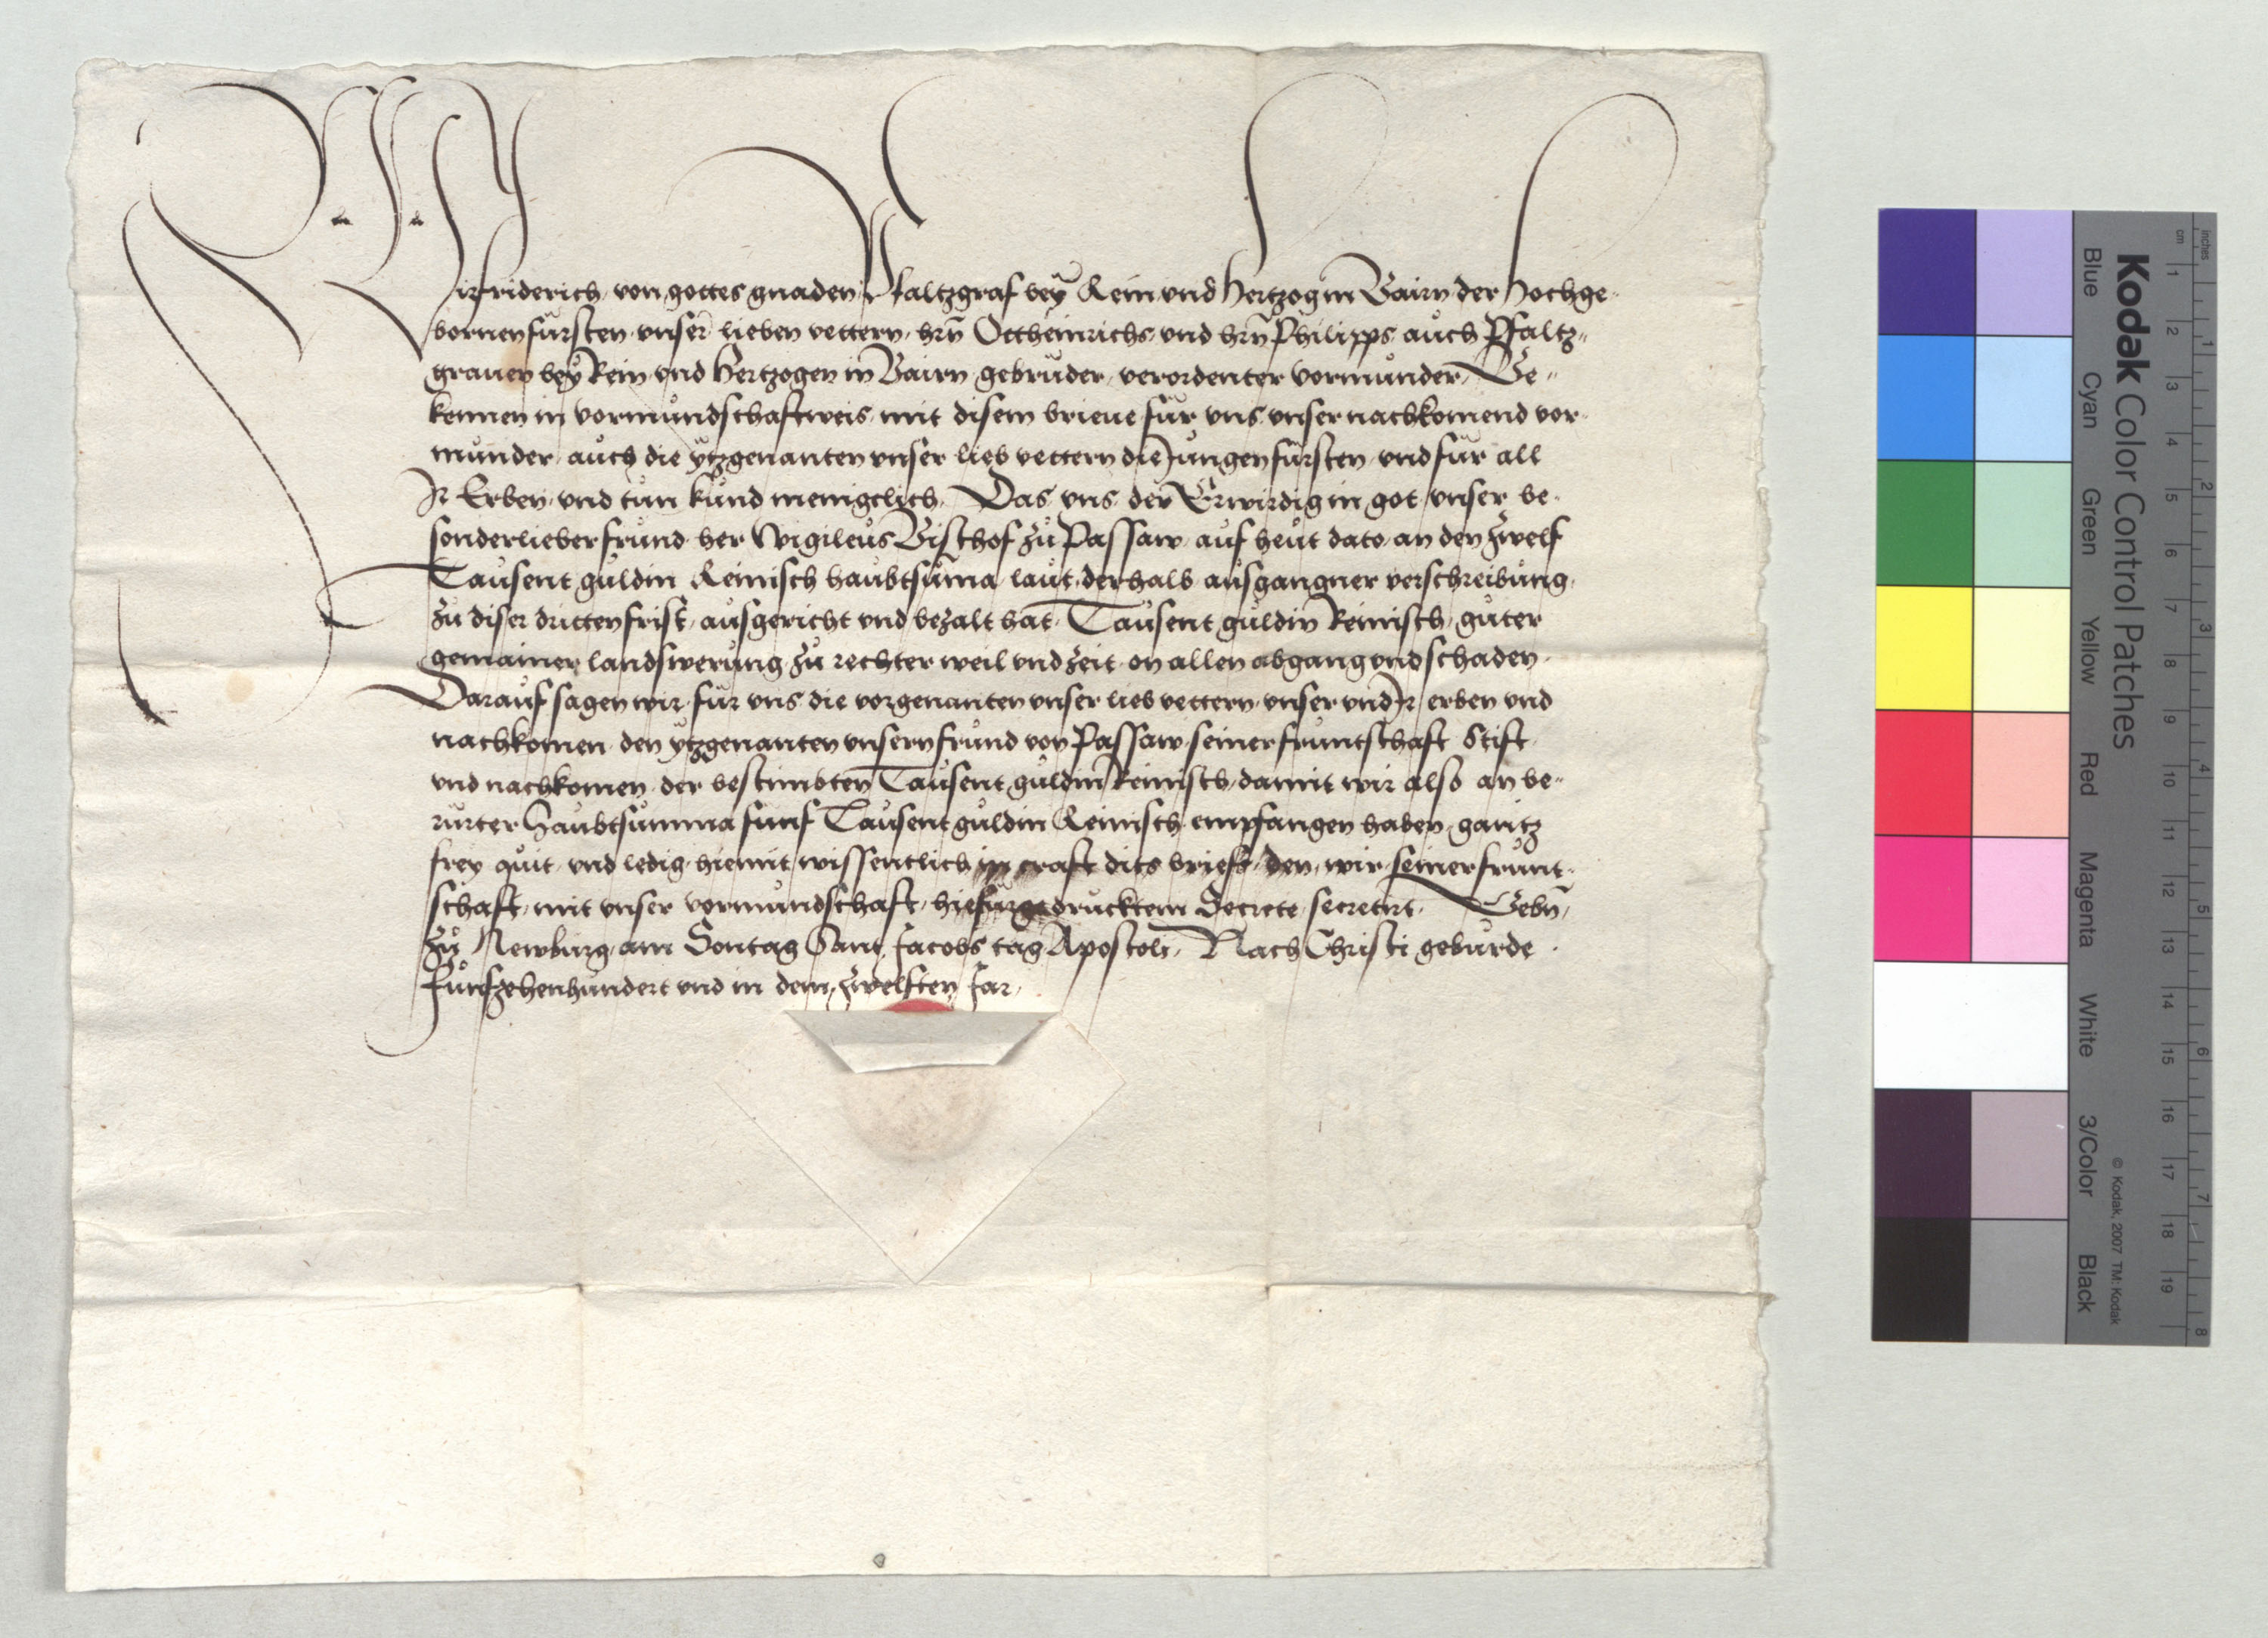 Wir Friderich von gottes gnaden Pfaltzgraf bey Rein und Hertzog in Bairn der Hochge-
bornen fursten unser lieben vettern hrn Ottheinrichs und hrn Philipps auch Pfaltz-
graven bey Rein und Hertzogen in Bairn gebruder verordenter vormunder Be-
kennen in vormundschaftweis mit disem brieve fur uns unser nachkomend vor-
munder auch die ytzgenanten unser lieb vettern die Jungen fursten und fur all
Ir Erben und tun kund menigclich Das uns der Erwirdig in got unser be-
sonder lieber frund her Wigileus Bischof zu Passaw auf heut dato an den zwelf
Tausent guldin Reinisch haubtsuma laut derhalb ausgangner verschreibung
zu diser dritten frist ausgericht und bezalt hat Tausent guldin Reinisch guter
gemainer landswerung zu rechter weil und zeit on allen abgang und schaden
Darauf sagen wir fur uns die vorgenanten unser lieb vettern unser und Ir erben und
nachkomen den ytzgenanten unsern frund von Passaw seiner fruntschaft Stift
und nachkomen der bestimbten Tausent guldin Reinisch damit wir also an be-
rurter Haubtsumma funf Tausent guldin Reinisch empfangen haben gantz
frey quit und ledig hiemit wissentlich in craft dits briefs den wir seiner frunt-
schaft mit unser vormundschaft hiefurgedrucktem Secrete secretirt Gebn
zu Newburg am Sontag Sant Jacobs tag Apostoli Nach Christi geburde
Funfzehenhundert und in dem zwelften Jar
Kodak Color Control Patches
Blue Cyan Green Yellow Red Magenta White 3/Color Black
© Kodak, 2007 TM: Kodak
inches 1 2 3 4 5 6 7 8
cm 1 2 3 4 5 6 7 8 9 10 11 12 13 14 15 16 17 18 19